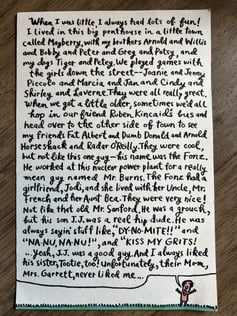 When I was little, I always had lots of fun!
I lived in this big penthouse in a little town
called Mayberry, with my brothers Arnold and Willis
and Bobby and Peter and Greg and Potsy, and
my dogs Tiger and Petey. We played games with
the girls down the street—Joanie and Jenny
Piccolo and Marcia and Jan and Cindy, and
Shirley and Laverne. They were all really great.
When we got a little older, sometimes we'd all
hop in our friend Ruben Kincaid's bus and
head over to the other side of town to see
my friends Fat Albert and Dumb Donald and Arnold
Horseshack and Radar O'Reilly. They were cool,
but not like this one guy—his name was the Fonz.
He worked at this nuclear power plant for a really
mean guy named Mr. Burns. The Fonz had a
girlfriend, Jodi, and she lived with her Uncle, Mr.
French and her Aunt Bee. They were very nice!
Not like that old Mr. Sanford. He was a grouch,
but his son J.J. was a real hip dude. He was
always sayin' stuff like, "DY-NO-MITE!!" and
"NA-NU, NA-NU!", and "KISS MY GRITS!"
...Yeah, J.J. was a good guy. And I always liked
his sister, Tootie, too! Unfortunately, their Mom,
Mrs. Garrett, never liked me...